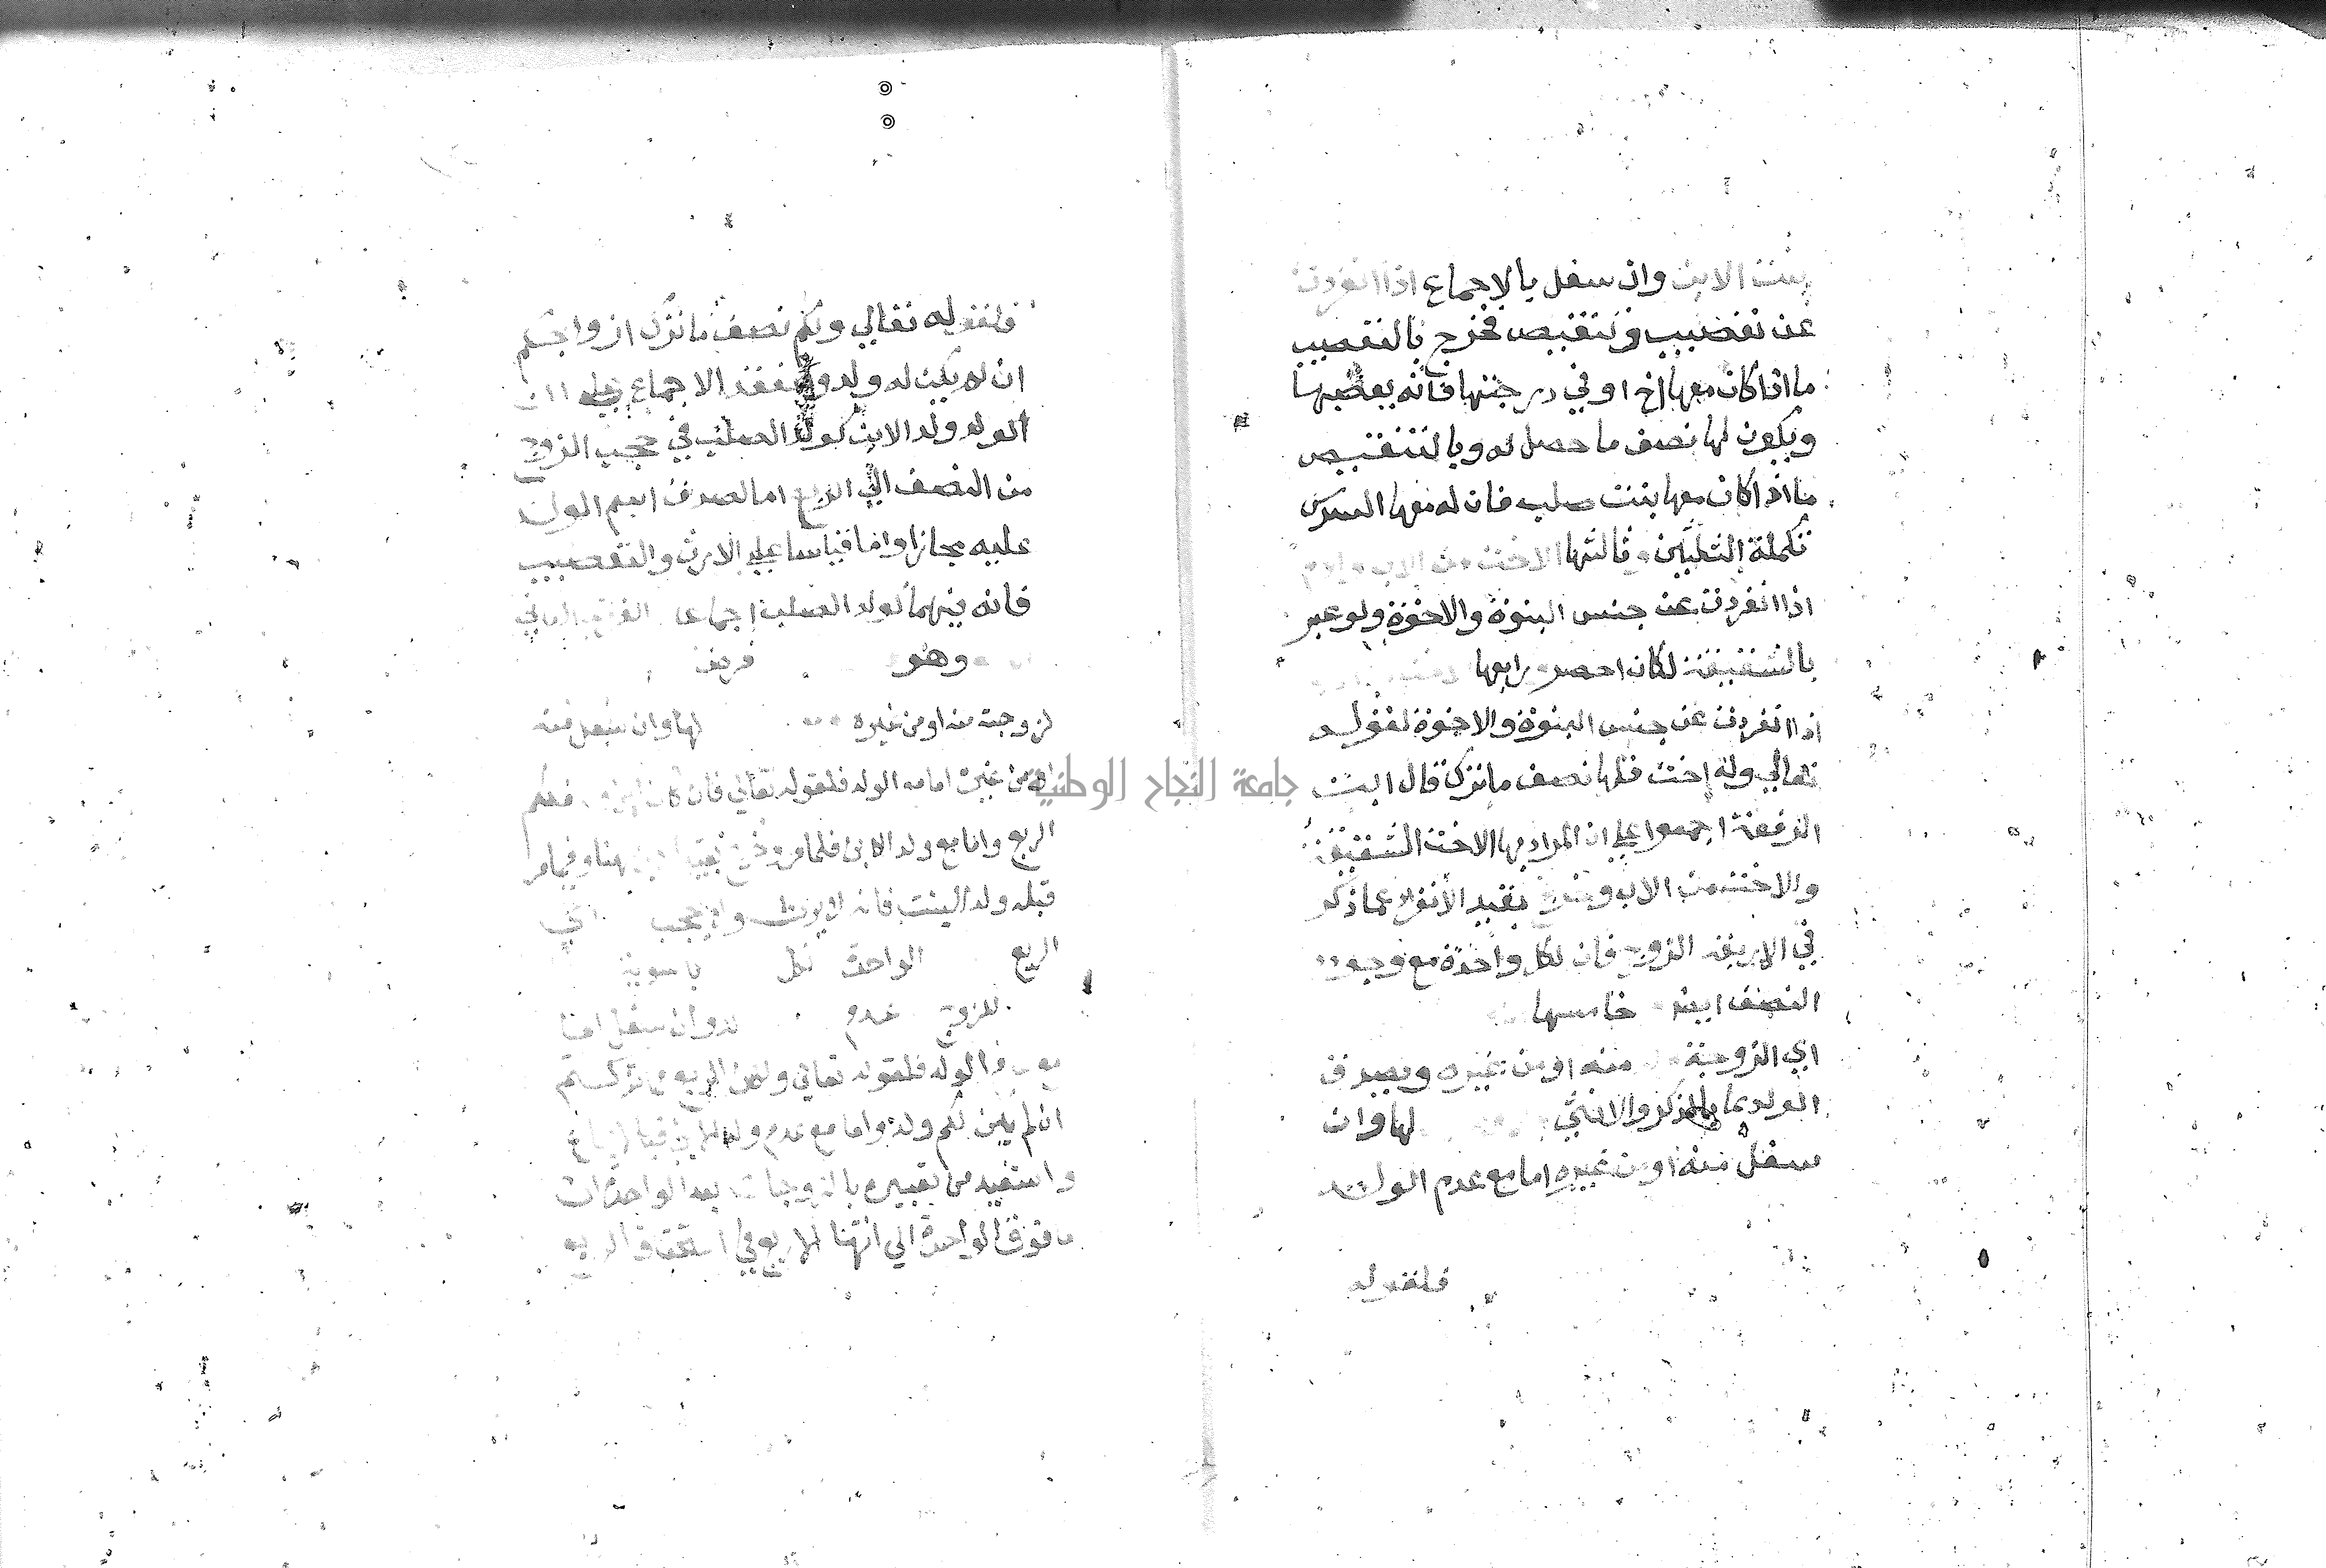 بنت الابن وان سفل بالاجماع اذا انفردت
عن تعصيب وتنقيص فخرج بالتعصيب
ما اذا كان معها اخ او في درجتها فانه يعصبها
ويكون لها نصف ما حصل له وبالتنقيص
ما اذا كان معها بنت صلب فان له معها السدس
تكملة الثلثين وثالثها الاخت من الاب
اذا انفردت عن جنس البنوة والاخوة ولو عبر
بالشقيقة لكان احصر رابعها
اذا انفردت عن جنس البنوة والاخوة لقوله
تعالي وله اخت فلها نصف ما ترك قال ابن
الرفعة اجمعوا علي ان المراد بها الاخت الشقيقة
والاخت من الاب وخرج بقيد الانفراد عما ذكر
في الاربعة الزوج فان لكل واحدة مع وجوده
النصف ايضا خامسها
اي الزوجة منه او من غيره ويصدق
الولد بما بالذكر والانثي لها وان
سفل منه او من غيره اما مع عدم الولد
فلقوله
فلقوله تعالي ولكم نصف ما ترك ازواجكم
ان لم يكن له ولد وانعقد الاجماع علي ان
الولد ولد الابن كولد الصلب في حجب الزوج
من النصف الي الربع اما لصدق اسم الولد
عليه مجازا واما قياسا علي الارث والتعصيب
فانه فيهما كولد الصلب اجماعا الفرع الثاني
وهو فرض
لزوجته منه او من غيره لها وان سفل منه
او من غيره اما مع الولد فلقوله تعالي فان كان لهن ولد فلكم
الربع واما مع ولد الابن فلما مر وخرج بقيد الابن هنا وفيما مر
قبله ولد البنت فانه لا يرث ولا يحجب
الربع الواحدة لكل بالسوية
للزوج عدم ولد وان سفل اما
مع عدم الولد فلقوله تعالي ولهن الربع مما تركتم
ان لم يكن لكم ولد واما مع عدم ولد الابن فبالاجماع
واستفيد من تعبيره بالزوجات بعد الواحدة ان
ما فوق الواحدة الي انتها الاربع في استحقاق الربع
جامعة النجاح الوطنية